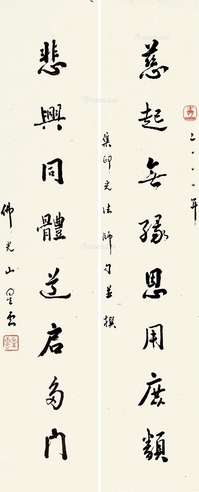 二〇〇〇年
慈起無緣恩用庶類
集印光法師句並撰
悲興同體道启多门
佛光山星雲